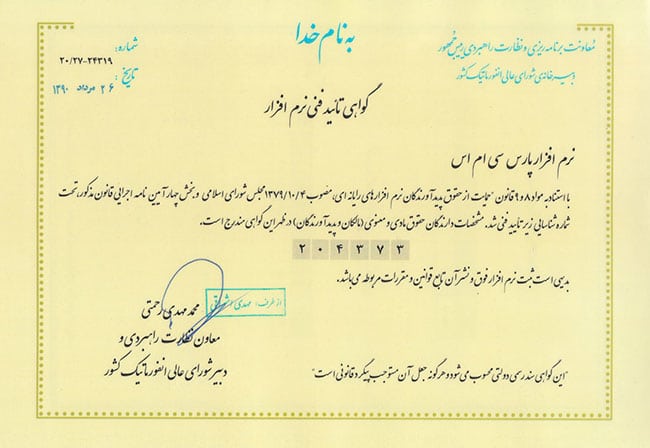 به نام خدا
معاونت برنامه ریزی و نظارت راهبردی رییس جمهور
دبیرخانه‌ی شورای عالی انفورماتیک کشور
شماره:
۲۰/۲۷-۲۴۳۱۹
تاریخ:
۲۶ مرداد ۱۳۹۰
گواهی تائید فنی نرم افزار
نرم افزار پارس سی ام اس
با استناد به مواد ۸ و ۹ قانون "حمایت از حقوق پدیدآورندگان نرم افزارهای رایانه ای، مصوب ۱۳۷۹/۱۰/۴ مجلس شورای اسلامی و بخش چهار آیین نامه اجرایی قانون مذکور، تحت
شماره شناسایی زیر تایید فنی شد. مشخصات دارندگان حقوق مادی و معنوی (مالکان و پدیدآورندگان) در ظهر این گواهی مندرج است.
۲۰۴۳۷۳
بدیهی است ثبت نرم افزار فوق و نشر آن تابع قوانین و مقررات مربوطه می باشد.
از طرف: مهدی
محمد مهدی رحمتی
معاون نظارت راهبردی و
دبیر شورای عالی انفورماتیک کشور
"این گواهی سند رسمی دولتی محسوب می شود و هرگونه جعل آن مستوجب پیگرد قانونی است"